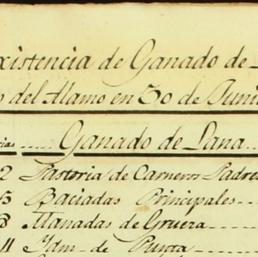 xistencia de Ganado de
del Alamo en 30 de Juni
cias ..... Ganado de Lana ...
2 Pastoria de Carneros Padre
5 Baciadas Principales --
8 Manadas de Grueza --
11 Ydm - de Punta --